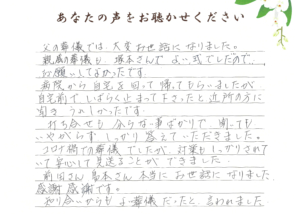 あなたの声をお聴かせください
父の葬儀では、大変お世話になりました。
親戚の葬儀も、塚本さんで よい式でしたので、
お願いしてよかったです。
病院から自宅を回って帰ってもらいましたが
自宅前でしばらく止まって下さったと近所の方に
聞き うれしかったです。
打ち合せも 分からない事ばかりで、聞いても
いやがらず しっかり答えていただきました。
コロナ禍での葬儀でしたが、対策もしっかりされて
いて安心して見送ることができました。
前田さん 高本さん 本当に お世話になりました
感謝 感謝です。
知り合いからもよい葬儀だったと、言われました。